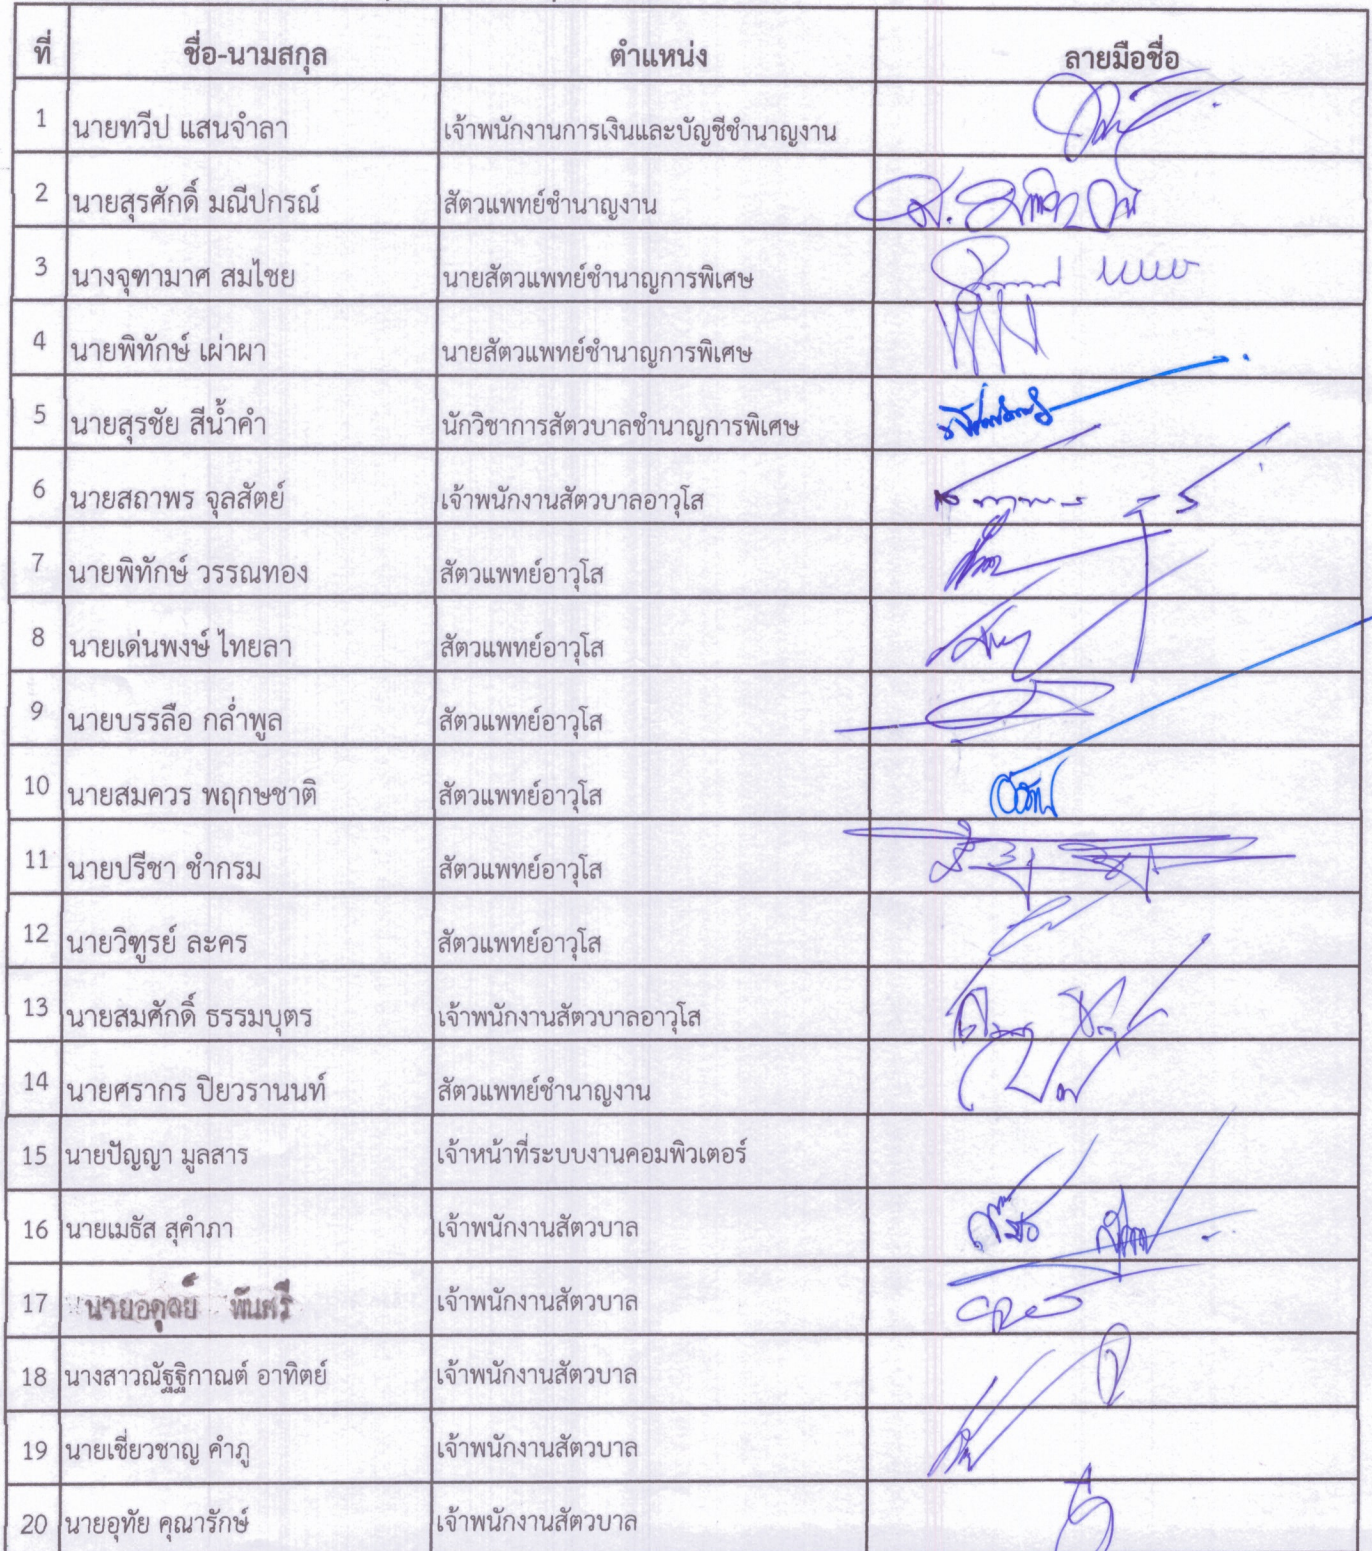 ที่ ชื่อ-นามสกุล ตำแหน่ง ลายมือชื่อ
1 นายทวีป แสนจำลา เจ้าพนักงานการเงินและบัญชีชำนาญงาน
2 นายสุรศักดิ์ มณีปกรณ์ สัตวแพทย์ชำนาญงาน
3 นางจุฑามาศ สมไชย นายสัตวแพทย์ชำนาญการพิเศษ
4 นายพิทักษ์ เผ่าผา นายสัตวแพทย์ชำนาญการพิเศษ
5 นายสุรชัย สีน้ำคำ นักวิชาการสัตวบาลชำนาญการพิเศษ
6 นายสถาพร จุลสัตย์ เจ้าพนักงานสัตวบาลอาวุโส
7 นายพิทักษ์ วรรณทอง สัตวแพทย์อาวุโส
8 นายเด่นพงษ์ ไทยลา สัตวแพทย์อาวุโส
9 นายบรรลือ กล่ำพูล สัตวแพทย์อาวุโส
10 นายสมควร พฤกษชาติ สัตวแพทย์อาวุโส
11 นายปรีชา ชำกรม สัตวแพทย์อาวุโส
12 นายวิฑูรย์ ละคร สัตวแพทย์อาวุโส
13 นายสมศักดิ์ ธรรมบุตร เจ้าพนักงานสัตวบาลอาวุโส
14 นายศรากร ปิยวรานนท์ สัตวแพทย์ชำนาญงาน
15 นายปัญญา มูลสาร เจ้าหน้าที่ระบบงานคอมพิวเตอร์
16 นายเมธัส สุคำภา เจ้าพนักงานสัตวบาล
17 นายอดุลย์ พันศรี เจ้าพนักงานสัตวบาล
18 นางสาวณัฐฐิกาณต์ อาทิตย์ เจ้าพนักงานสัตวบาล
19 นายเชี่ยวชาญ คำภู เจ้าพนักงานสัตวบาล
20 นายอุทัย คุณารักษ์ เจ้าพนักงานสัตวบาล